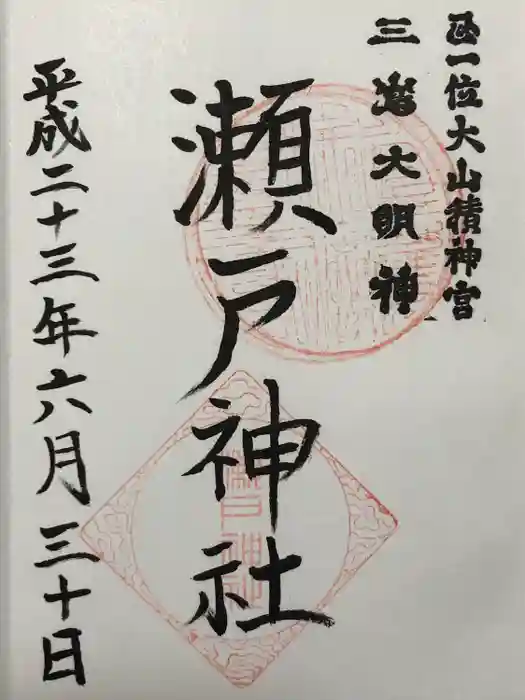 正一位大山積神宮
三島大明神
瀬戸神社
平成二十三年六月三十日
瀬戸神社